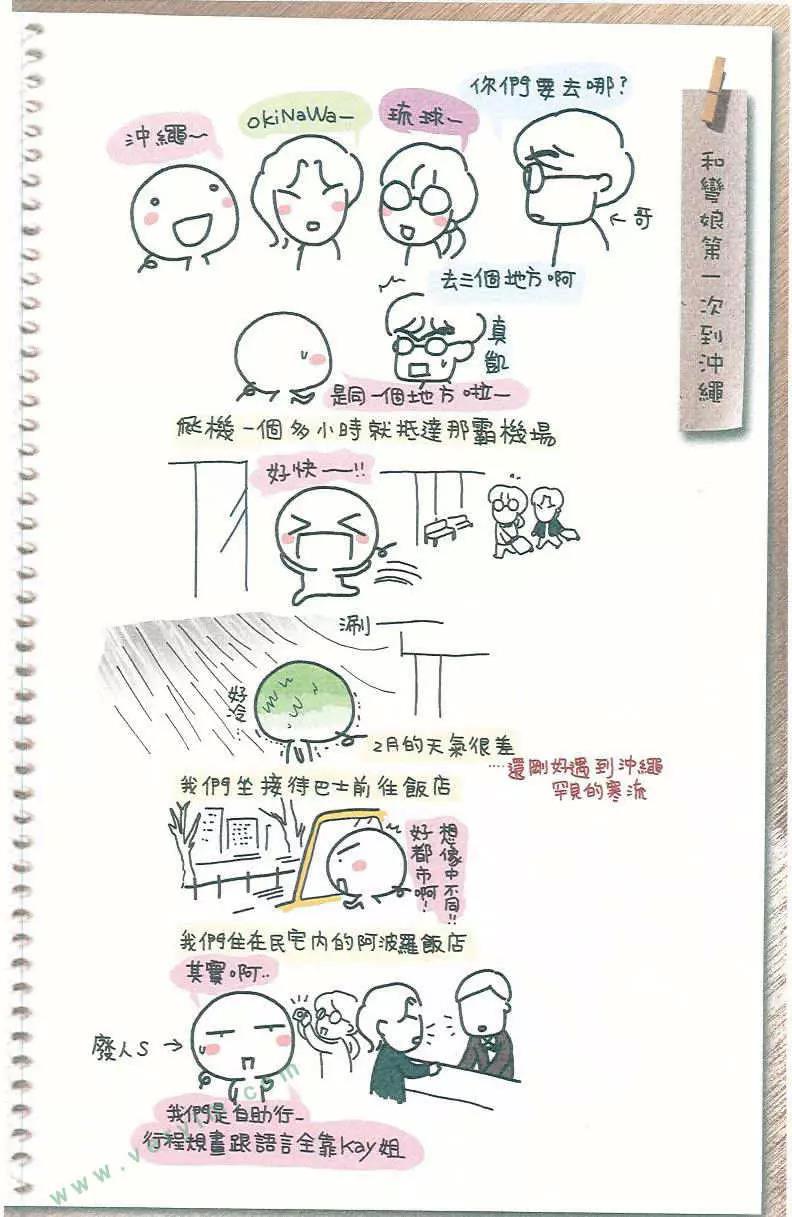 和彎娘第一次到沖繩
你們要去哪？
琉球～
okiNaWa～
沖繩～
←哥
去三個地方啊
真凱
是同一個地方啦～
飛機一個多小時就抵達那霸機場
好快——!!
涮——
好冷…
2月的天氣很差
……還剛好遇到沖繩
罕見的寒流
我們坐接待巴士前往飯店
想像中不同!!
好都市啊!
我們住在民宅內的阿波羅飯店
其實啊..
廢人S→
我們是自助行～
行程規畫跟語言全靠Kay姐